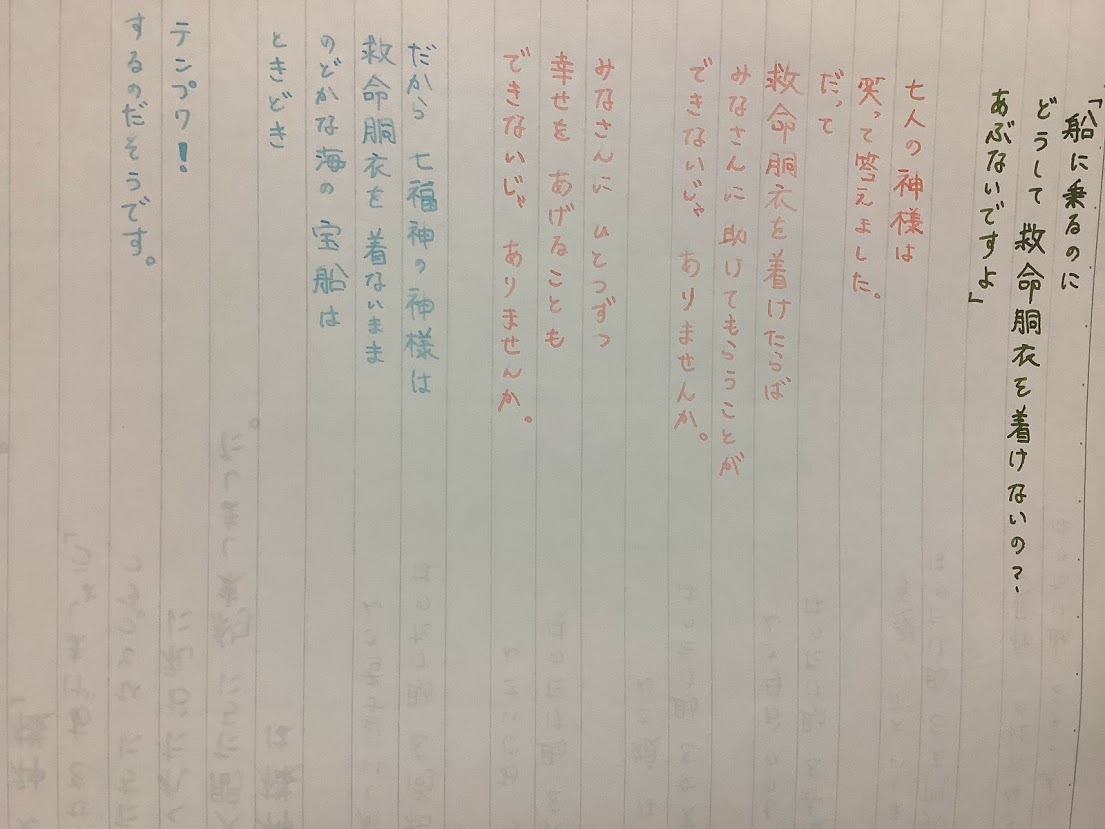 「船に乗るのに
どうして 救命胴衣を着けないの?
あぶないですよ」
七人の神様は
笑って答えました。
だって
救命胴衣を着けたらば
みなさんに助けてもらうことが
できないじゃ ありませんか。
みなさんに ひとつずつ
幸せを あげることも
できないじゃ ありませんか。
だから 七福神の神様は
救命胴衣を 着ないまま
のどかな海の 宝船は
ときどき
テンプク!
するのだそうです。